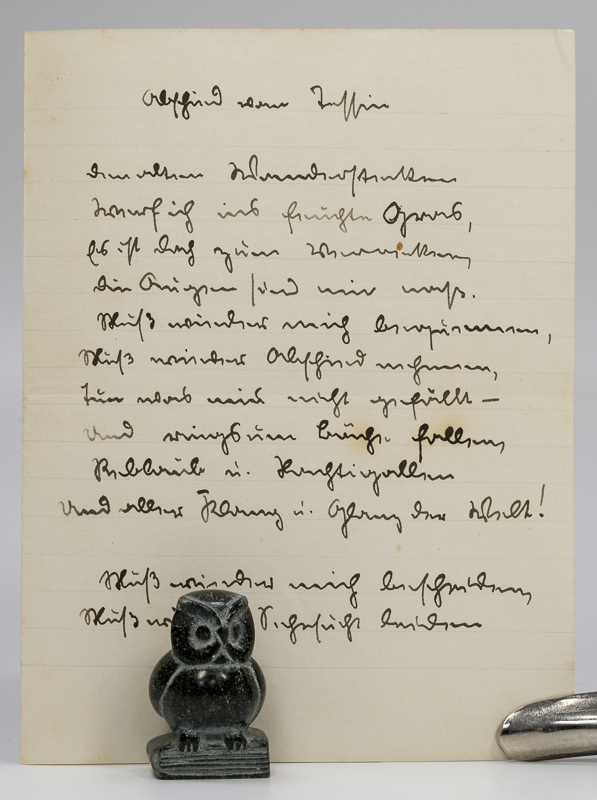 Abschied vom Tessin
Den alten Wanderstecken
Werf ich ins feuchte Gras,
Es ist doch zum Verrecken,
Die Augen sind mir naß.
Muß wieder mich bequemen,
Muß wieder Abschied nehmen,
Tun was mir nicht gefällt –
Und ringsum fallen,
Reblaub u. Nachtigallen
Und aller Klang u. Glanz der Welt!
Muß wieder mich bescheiden,
Muß Sehnsucht leiden